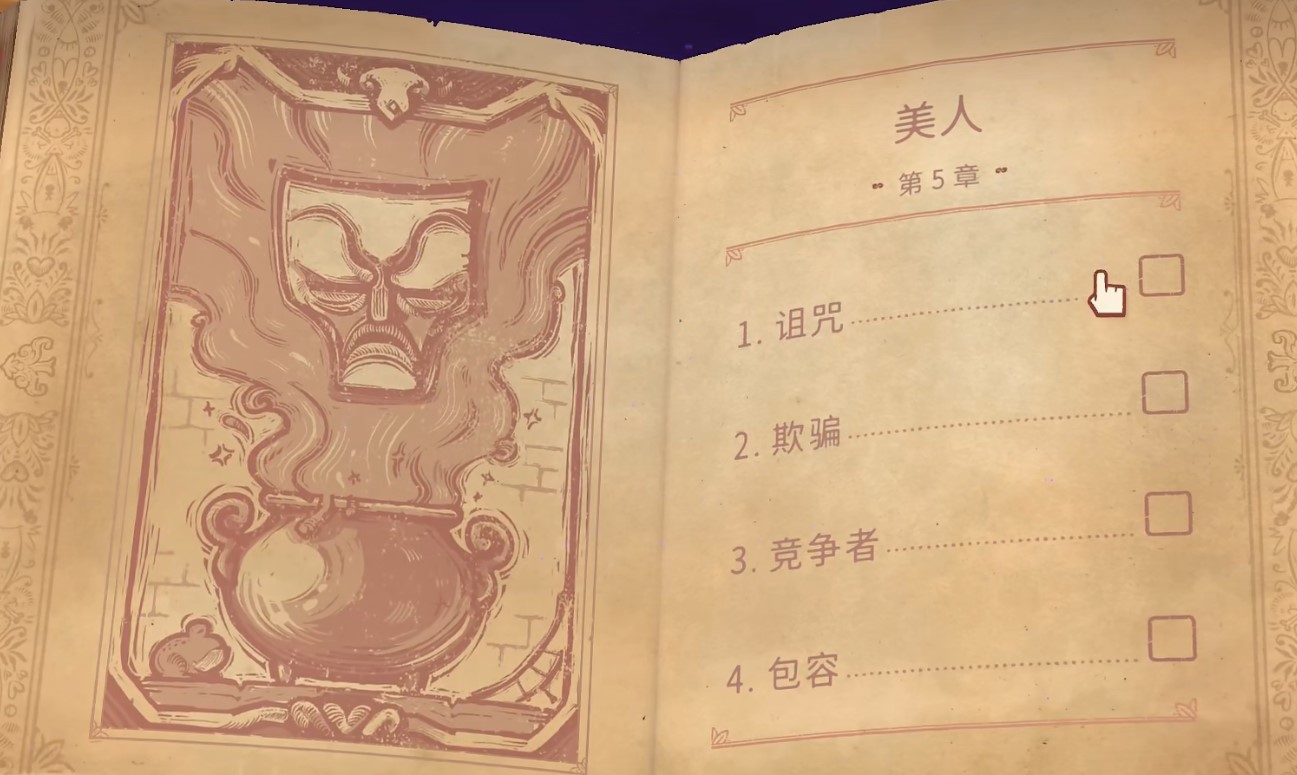 美人
第5章
1. 诅咒
2. 欺骗
3. 竞争者
4. 包容